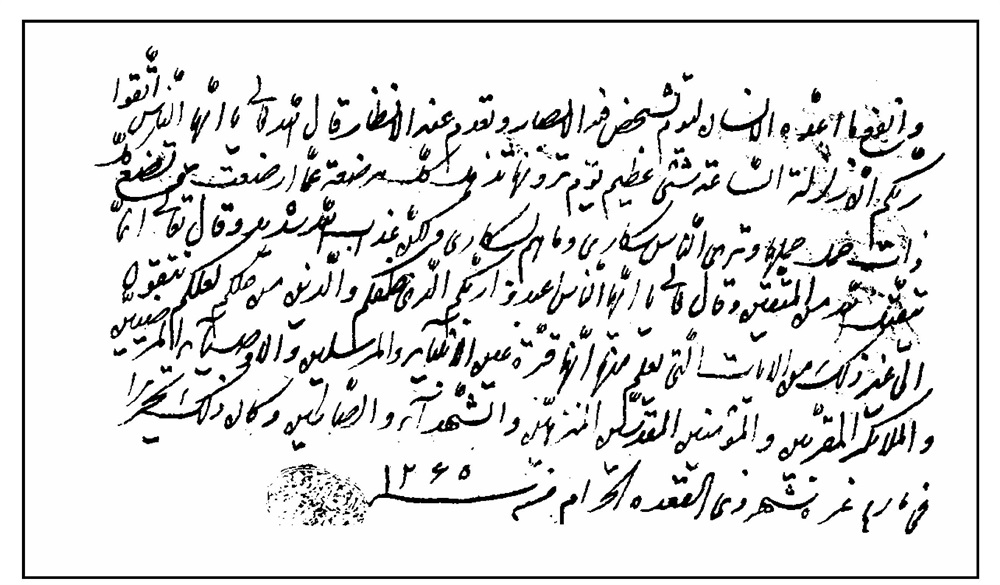 واتقوا ما اعده الانسان ليوم تشخص فيه الابصار وتعدم عنه الانظار قال الله تعالى يا ايها الناس اتقوا
ربكم ان زلزلة الساعة شئ عظيم يوم ترونها تذهل كل مرضعة عما ارضعت وتضع كل
ذات حمل حملها وترى الناس سكارى وما هم بسكارى ولكن عذاب الله شديد وقال تعالى انما
يتقبل الله من المتقين وقال تعالى يا ايها الناس اعبدوا ربكم الذى خلقكم والذين من قبلكم لعلكم تتقون
الى غير ذلك من الايات التى يعلم منها انها قرة عين الانبياء والمرسلين والاوصياء المرضيين
والملائكة المقربين والمؤمنين المقدسين المنزهين والشهدآء والصالحين وكان ذلك تحريرا
فى تاريخ غرة شهر ذى القعدة الحرام سنة ١٢٦٥